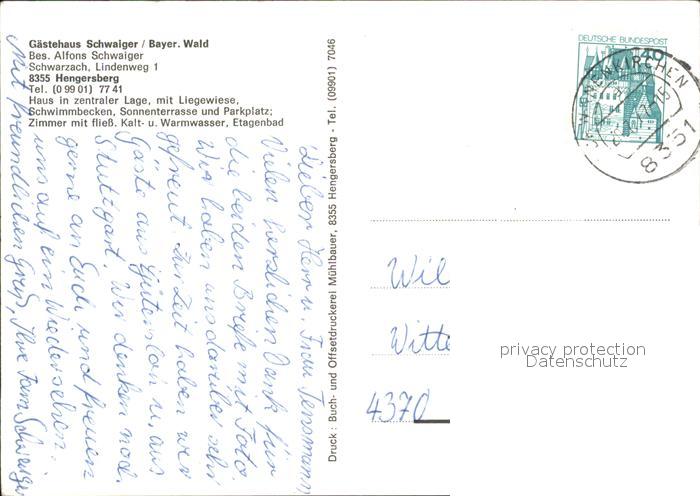 Gästehaus Schwaiger / Bayer. Wald
Bes. Alfons Schwaiger
Schwarzach, Lindenweg 1
8355 Hengersberg
Tel. (0 99 01) 77 41
Haus in zentraler Lage, mit Liegewiese,
Schwimmbecken, Sonnenterrasse und Parkplatz;
Zimmer mit fließ. Kalt- u. Warmwasser, Etagenbad
Lieber Herr u. Frau
Vielen herzlichen Dank für
die beiden Briefe mit Foto.
Wir haben uns darüber sehr
gefreut. Zur Zeit haben wir
Gäste aus Gütersloh u. aus
Stuttgart. Wir denken noch
gerne an Euch und freuen
uns auf ein Wiedersehen.
Mit freundlichen Gruß, Ihre Fam Schwaiger
Druck: Buch- und Offsetdruckerei Mühlbauer, 8355 Hengersberg - Tel. (09901) 7046
DEUTSCHE BUNDESPOST
40
8351
Wil
Witte
4370
privacy protection
Datenschutz